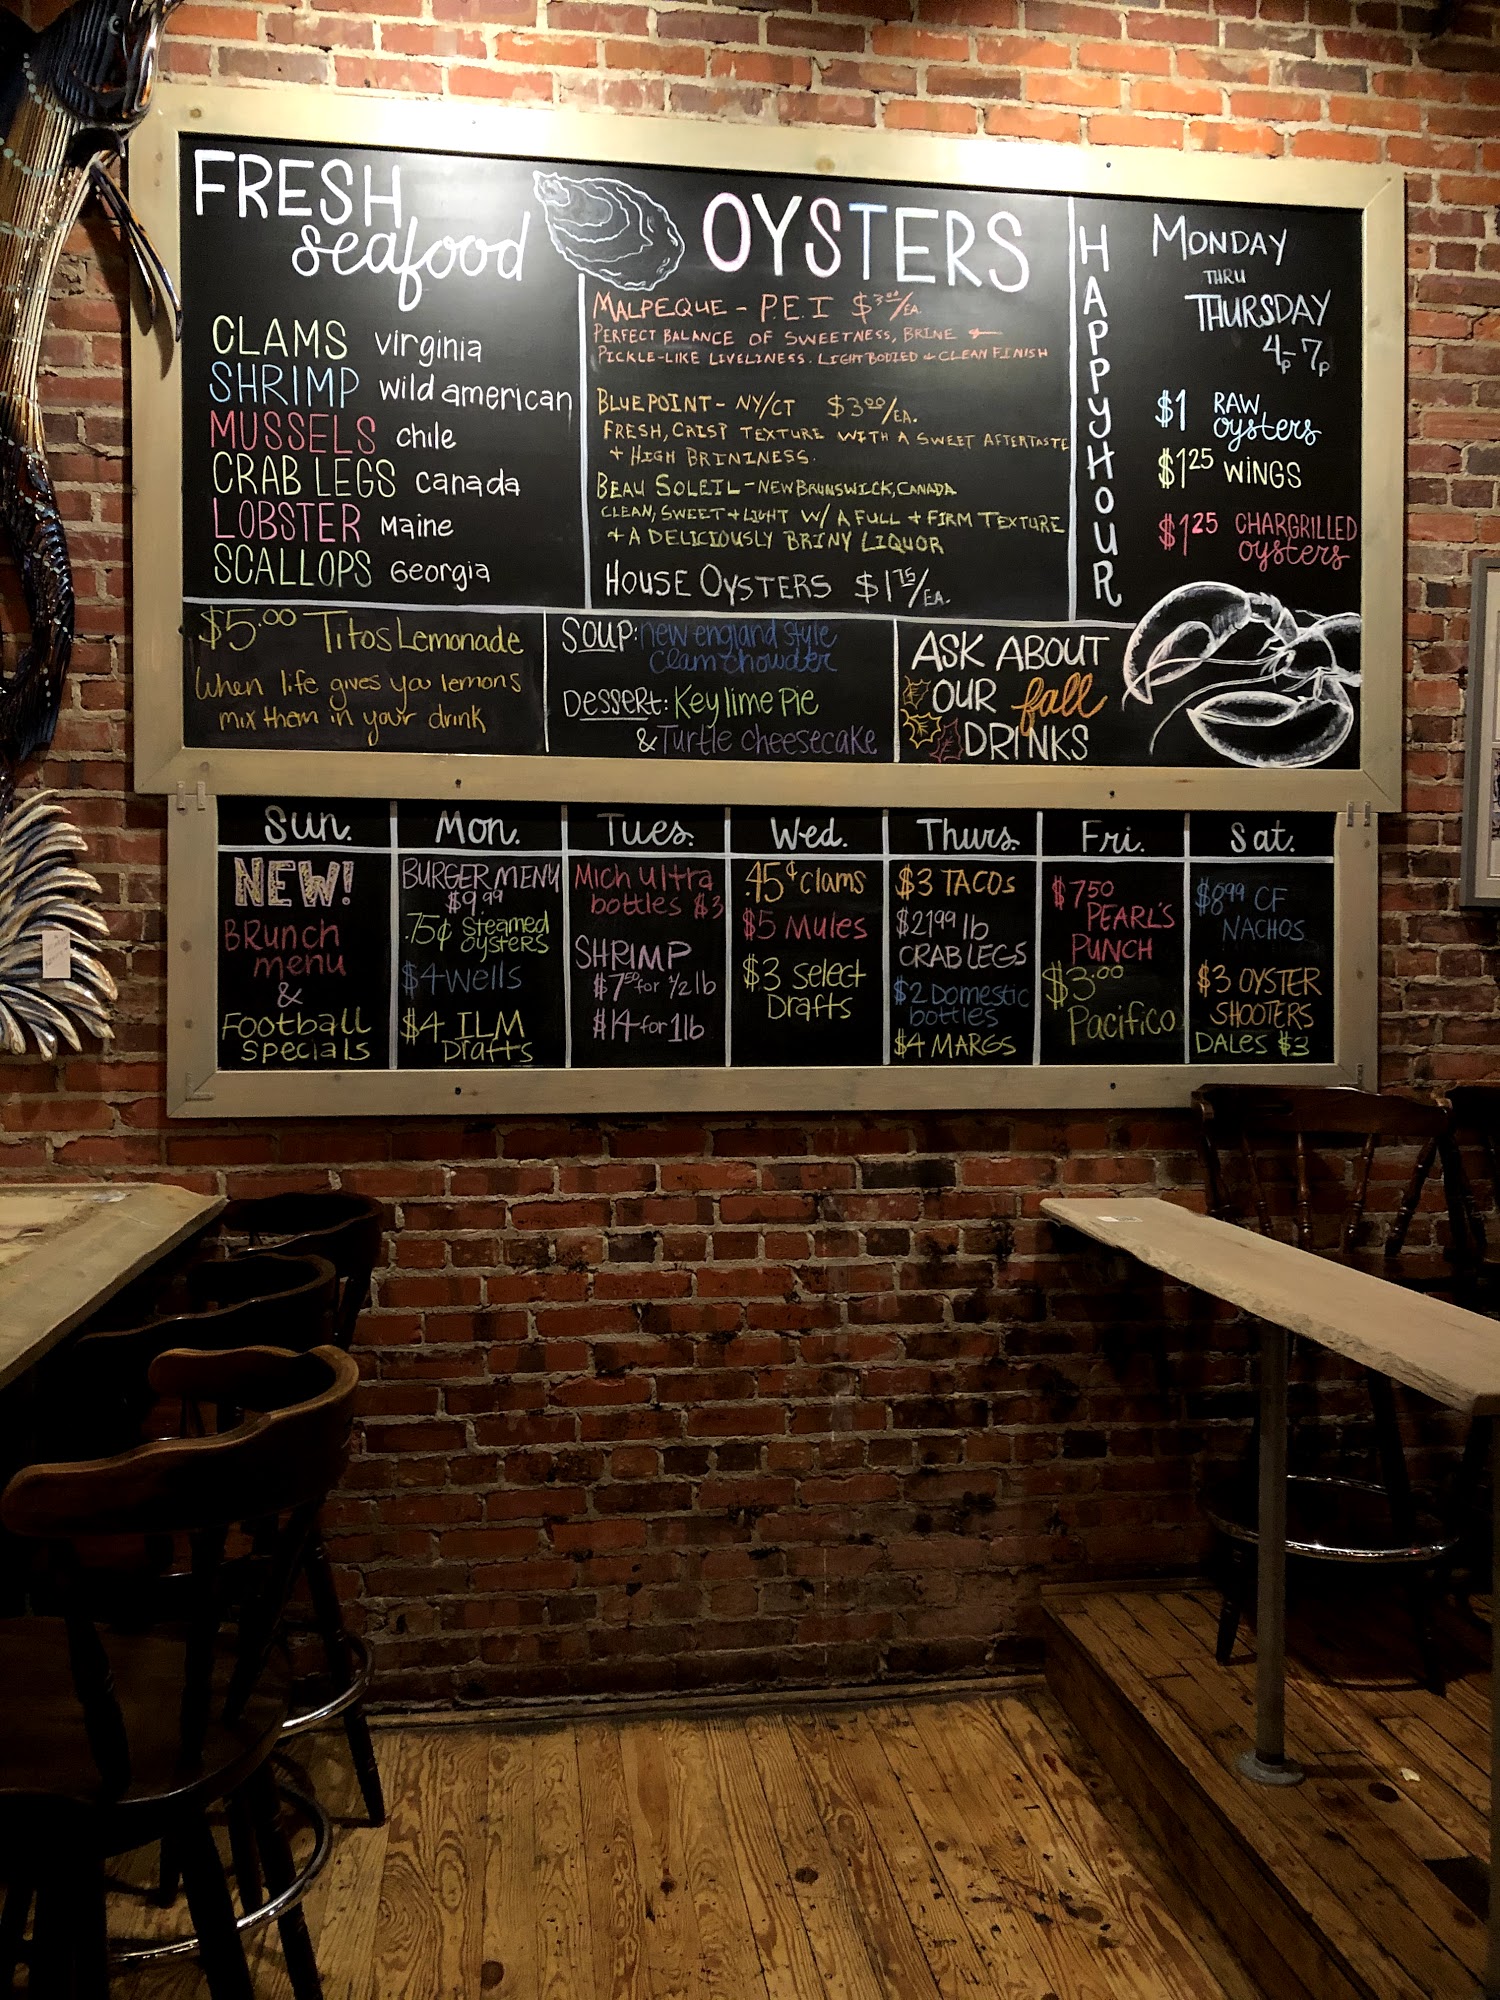 FRESH
seafood
CLAMS virginia
SHRIMP wild american
MUSSELS chile
CRAB LEGS canada
LOBSTER Maine
SCALLOPS Georgia
OYSTERS
MALPEQUE - P.E.I $3.00/EA.
PERFECT BALANCE OF SWEETNESS, BRINE +
PICKLE-LIKE LIVELINESS. LIGHT BODIED + CLEAN FINISH
BLUEPOINT - NY/CT $3.00/EA.
FRESH, CRISP TEXTURE WITH A SWEET AFTERTASTE
+ HIGH BRININESS.
BEAU SOLEIL - NEW BRUNSWICK, CANADA
CLEAN, SWEET + LIGHT W/ A FULL + FIRM TEXTURE
+ A DELICIOUSLY BRINY LIQUOR
HOUSE OYSTERS $1.75/EA.
HAPPY HOUR
MONDAY
THRU
THURSDAY
4p-7p
$1 RAW
oysters
$1.25 WINGS
$1.25 CHARGRILLED
oysters
$5.00 Titos Lemonade
When life gives you lemons
mix them in your drink
SOUP: new england style
Clam chowder
DESSERT: Key lime Pie
& Turtle cheesecake
ASK ABOUT
OUR fall
DRINKS
Sun.
NEW!
BRunch
menu
&
Football
Specials
Mon.
BURGER MENU
$9.99
.75¢ Steamed
OYSTERS
$4 Wells
$4 ILM
Drafts
Tues.
Mich Ultra
bottles $3
SHRIMP
$7.50 for 1/2 lb
$14 for 1lb
Wed.
.45¢ Clams
$5 Mules
$3 Select
Drafts
Thurs.
$3 TACOS
$21.99 lb
CRAB LEGS
$2 Domestic
bottles
$4 MARGS
Fri.
$7.50
PEARL'S
PUNCH
$3.00
Pacifico
Sat.
$8.99 CF
NACHOS
$3 OYSTER
SHOOTERS
DALES $3